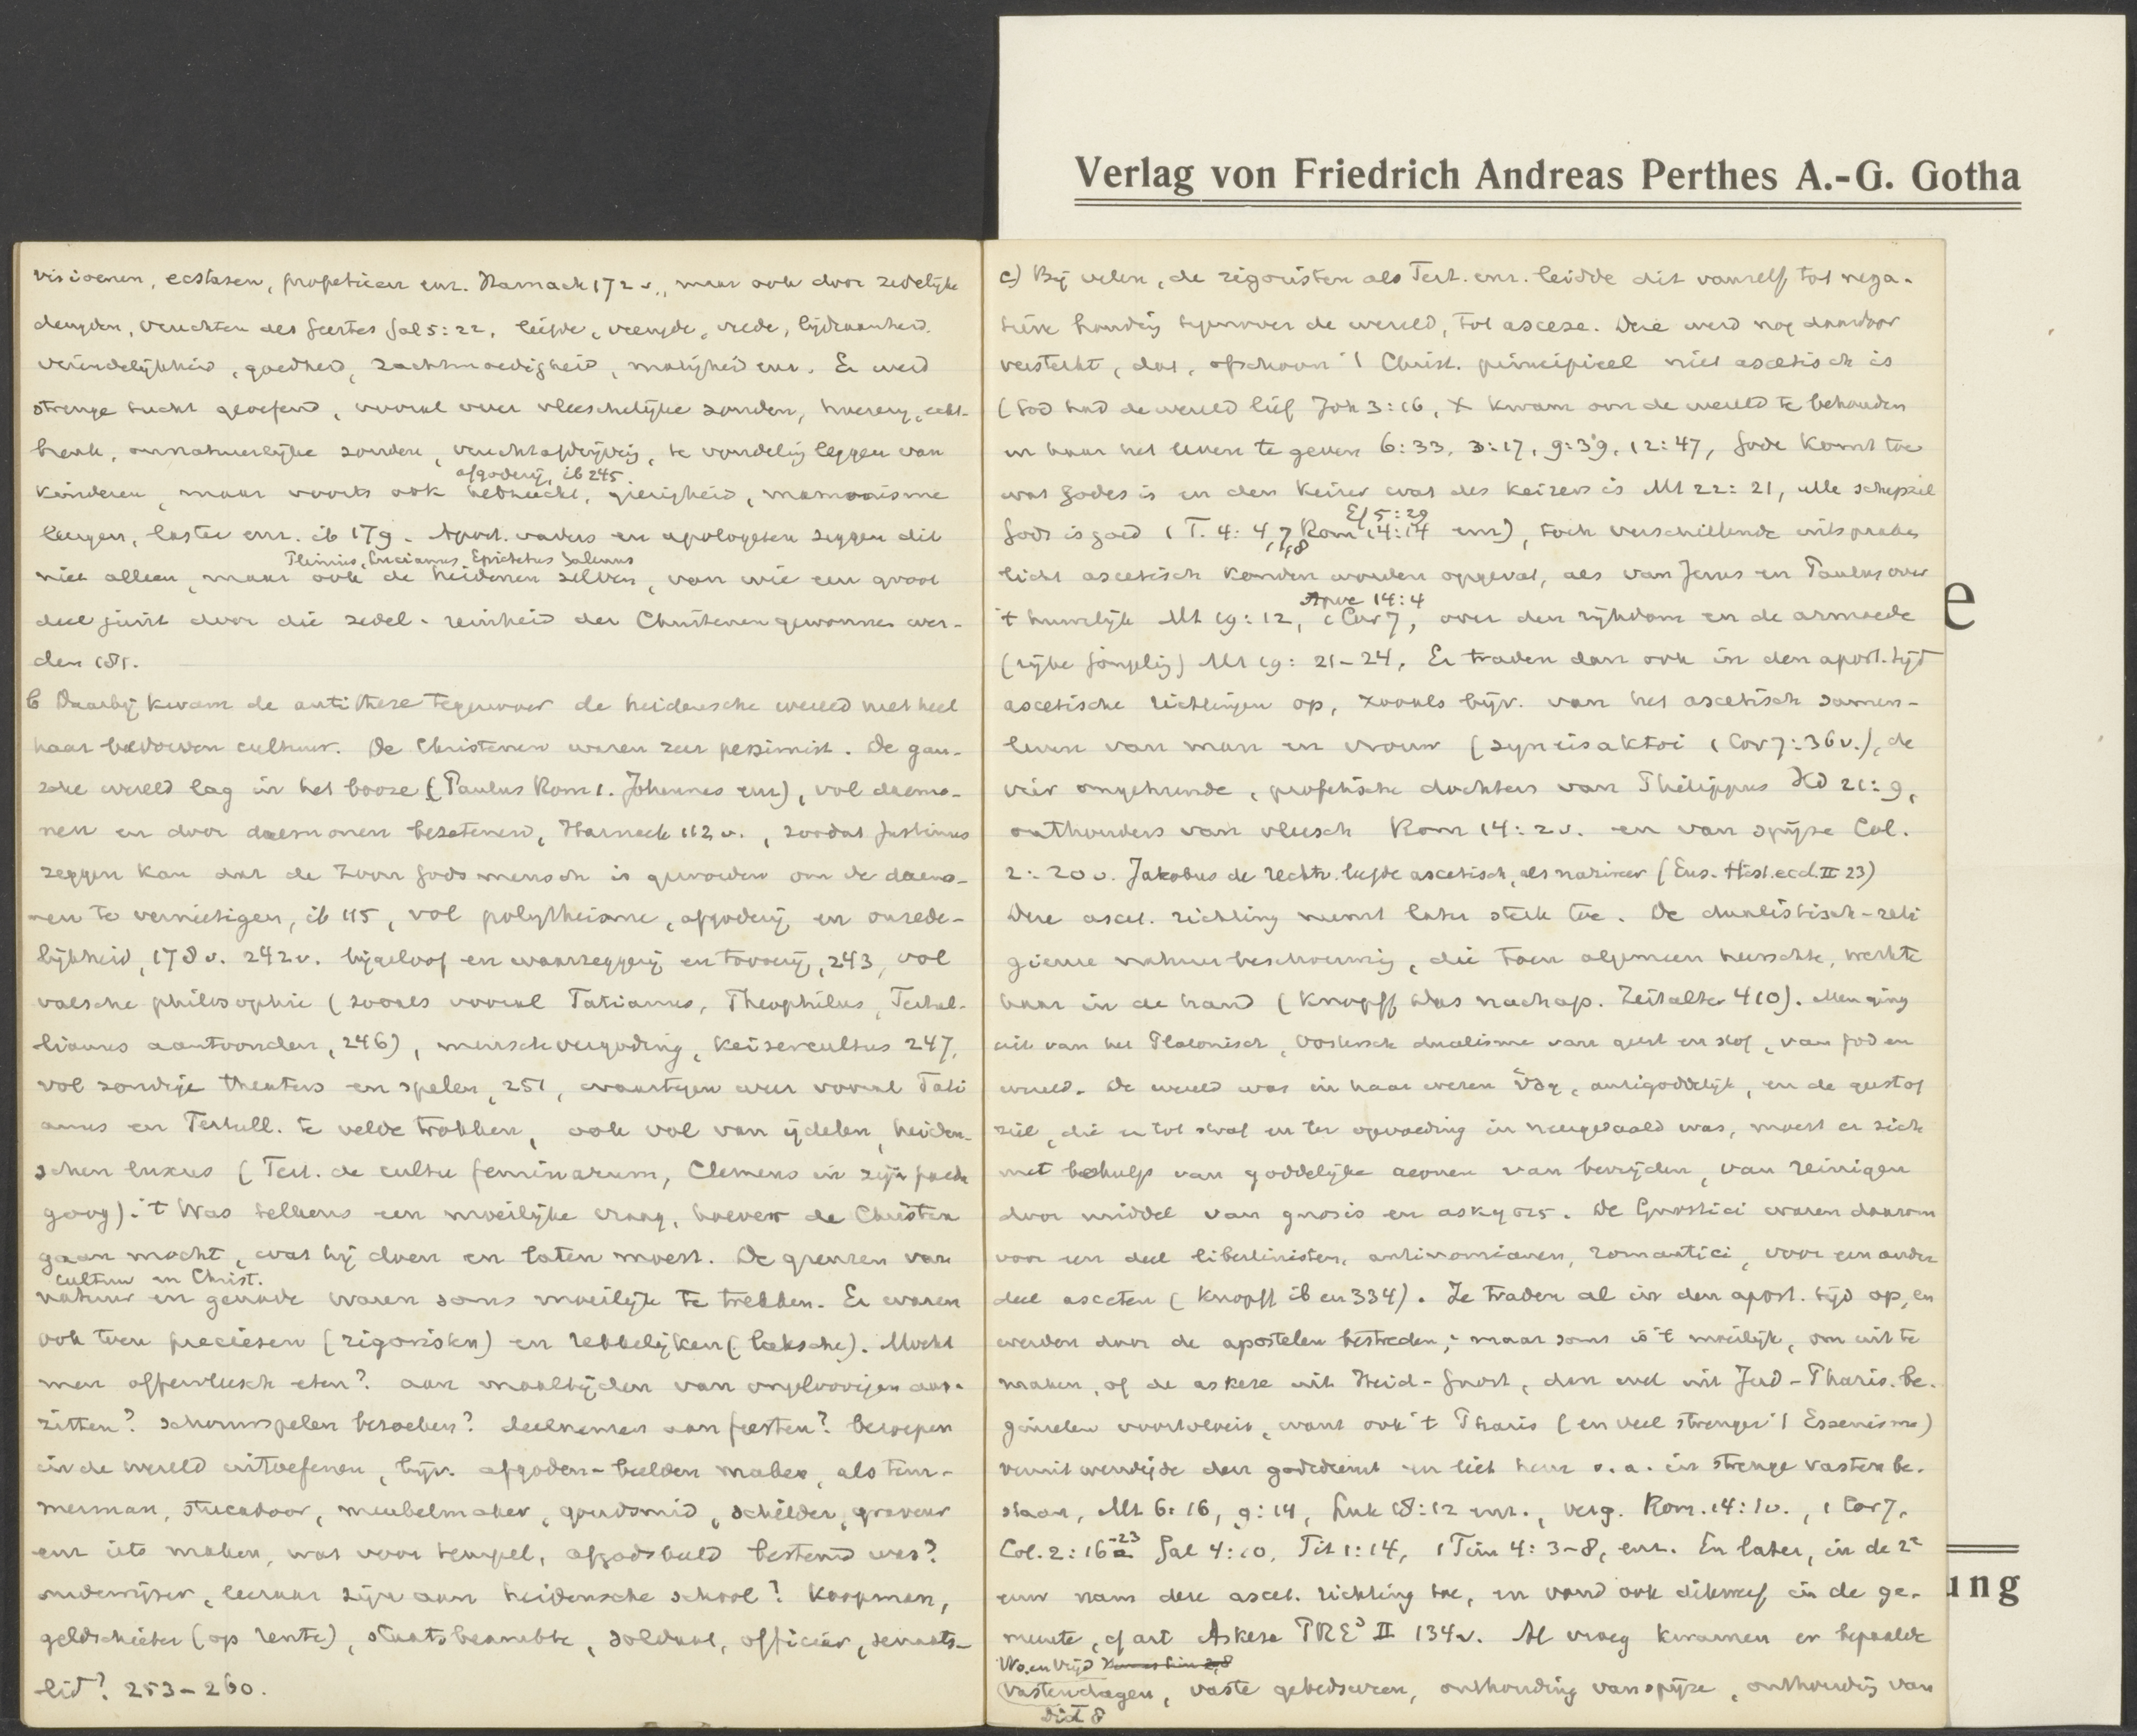 Verlag von Friedrich Andreas Perthes A.-G. Gotha
visioenen, ecstasen, profetieën enz. Harnack 172 v., maar ook door zedelijke
deugden, vruchten des Geestes Gal 5:22, liefde, vreugde, vrede, lijdzaamheid.
vriendelijkheid, goedheid, zachtmoedigheid, matigheid enz. Er werd
strenge tucht geoefend, vooral over vleeschelijke zonden, hoererij, echt-
breuk, onnatuurlijke zonden, vruchtafdrijving, te vondeling leggen van
afgoderij, ib 245.
kinderen, maar voorts ook hebzucht, gierigheid, mammonisme
leugen, laster enz. ib 179. Apost. vaders en apologeten zeggen dit
Plinius, Lucianus, Epictetus Galenus
niet alleen, maar ook de heidenen zelven, van wie een groot
deel juist door die zedel. reinheid der Christenen gewonnen wer-
den 181.
b Daarbij kwam de antithese tegenover de heidensche wereld met heel
haar bedorven cultuur. De Christenen waren zeer pessimist. De gan-
sche wereld lag in het booze (Paulus Rom 1. Johannes enz), vol daemo-
nen en door daemonen bezeten, Harnack 112 v., zoodat Justinus
zeggen kan dat de Zoon Gods mensch is geworden om de daemo-
nen te vernietigen, ib 115, vol polytheisme, afgoderij en onzede-
lijkheid, 178 v. 242 v. bijgeloof en waarzeggerij en toverij, 243, vol
valsche philosophie (zooals vooral Tatianus, Theophilus, Tertul-
lianus aantoonden, 246), menschvergoding, keizercultus 247,
vol zondige theaters en spelen, 251, waartegen weer vooral Tati
anus en Tertull. te velde trokken, ook vol van ijdelen, heiden-
schen luxus (Tert. de cultu feminarum, Clemens in zijn paeda
goog). 't Was telkens een moeilijke vraag, hoever de Christen
gaan mocht, wat hij doen en laten moest. De grenzen van
cultuur en Christ.
natuur en genade waren soms moeilijk te trekken. Er waren
ook toen preciesen (rigoristen) en rekkelijken (laksche). Mocht
men offervleesch eten? aan maaltijden van ongeloovigen aan-
zitten? schouwspelen bezoeken? deelnemen aan feesten? beroepen
in de wereld uitoefenen, bijv. afgoden-beelden maken, als tim-
merman, stucadoor, meubelmaker, goudsmid, schilder, graveur
enz iets maken, wat voor tempel, afgodsbeeld bestemd was?
onderwijzer, leeraar zijn aan heidensche school? Koopman,
geldschieter (op rente), staatsbeambte, soldaat, officier, senaats-
lid? 253-260.
c) Bij velen, de rigoristen als Tert. enz. leidde dit vanzelf tot nega-
tieve houding tegenover de wereld, tot ascese. Deze werd nog daardoor
versterkt, dat, ofschoon 't Christ. principieel niet ascetisch is
(God had de wereld lief Joh 3:16, X kwam om de wereld te behouden
en haar het leven te geven 6:33, 3:17, 9:39, 12:47, Gode komt toe
wat Godes is en den keizer wat des keizers is Mt 22:21, alle schepsel
Ef 5:29
Gods is goed 1 T. 4:4, 7, 8 Rom 14:14 enz), toch verschillende uitspraken
licht ascetisch konden worden opgevat, als van Jezus en Paulus over
Apoc 14:4
't huwelijk Mt 19:12, 1 Cor 7, over den rijkdom en de armoede
(rijke jongeling) Mt 19:21-24. Er traden dan ook in den apost. tijd
ascetische richtingen op, zooals bijv. van het ascetisch samen-
leven van man en vrouw (syneisaktoi 1 Cor 7:36 v.), de
vier ongehuwde, profetische dochters van Philippus Hd 21:9,
onthouders van vleesch Rom 14:2 v. en van spijze Col.
2:20 v. Jakobus de rechtv. leefde ascetisch, als nazireer (Eus. Hist. eccl. II 23)
Deze ascet. richting neemt later sterk toe. De dualistisch-reli
gieuze natuurbeschouwing, die toen algemeen heerschte, werkte
haar in de hand (Knopff Das nachap. Zeitalter 410). Men ging
uit van het Platonisch, Oostersch dualisme van geest en stof, van God en
wereld. De wereld was in haar wezen ὕλη, antigoddelijk, en de geest of
ziel, die er tot straf en ter opvoeding in neergedaald was, moest er zich
met behulp van goddelijke aeonen van bevrijden, van reinigen
door middel van gnosis en ασκησις. De Gnostici waren daarom
voor een deel libertinisten, antinomianen, romantici, voor een ander
deel asceten (Knopff ib en 334). Ze traden al in den apost. tijd op, en
werden door de apostelen bestreden; maar soms is 't moeilijk, om uit te
maken, of de askese uit Heid-Gnost, dan wel uit Jud-Pharis. be-
ginselen voortvloeit, want ook 't Pharis (en veel strenger 't Essenisme)
veruitwendigde den godsdienst en liet hem o.a. in strenge vasten be-
staan, Mt 6:16, 9:14, Luk 18:12 enz., verg. Rom. 14:1 v., 1 Cor 7,
Col. 2:16-23 Gal 4:10, Tit 1:14, 1 Tim 4:3-8, enz. En later, in de 2e
eeuw nam deze ascet. richting toe, en vond ook dikwijls in de ge-
meente, cf art Askese PRE³ II 134 v. Al vroeg kwamen er bepaalde
Wo. en Vrijd
vastendagen, vaste gebedsuren, onthouding van spijze, onthouding van
Did 8
e
ung